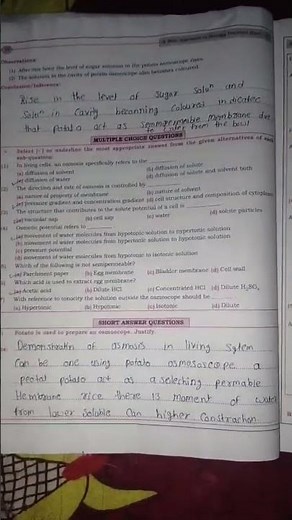 Observations:
(1) After two hours the level of sugar solution in the potato osmoscope rises.
(2) The solution in the cavity of potato osmoscope also becomes coloured.
Conclusion/Inference:
Rise in the level of sugar Soluⁿ and
Soluⁿ in Cavity becomning Coloured indicates
that potato act as Semipermeable membrane
to water from the bowl
MULTIPLE CHOICE QUESTIONS
Select [✓] or underline the most appropriate answer from the given alternatives of each
sub-question:
(1) In living cells, an osmosis specifically refers to the
(a) diffusion of solvent (b) diffusion of solute
(c) diffusion of water (d) diffusion of solute and solvent both
(2) The direction and rate of osmosis is controlled by
(a) nature of property of membrane (b) nature of solvent
(c) pressure gradient and concentration gradient (d) cell structure and composition of cytoplasm
(3) The structure that contributes to the solute potential of a cell is
(a) vacuolar sap (b) cell sap (c) water (d) solute particles
(4) Osmotic potential refers to
(a) movement of water molecules from hypotonic solution to hypertonic solution
(b) movement of water molecules from hypertonic solution to hypotonic solution
(c) pressure potential
(d) movement of water molecules from hypotonic to isotonic solution
Which of the following is not semipermeable?
(a) Parchment paper (b) Egg membrane (c) Bladder membrane (d) Cell wall
Which acid is used to extract egg membrane?
(a) Acetic acid (b) Dilute HCl (c) Concentrated HCl (d) Dilute H₂SO₄
With reference to tonicity the solution outside the osmoscope should be
(a) Hypertonic (b) Hypotonic (c) Isotonic (d) Dilute
SHORT ANSWER QUESTIONS
Potato is used to prepare an osmoscope. Justify.
Demonstration of osmosis in living System
Can be one using potato osmososcope. a
potato act as a selecting permable
Membrane rice there is moment of water
from lower Soluble Can higher Constrachen